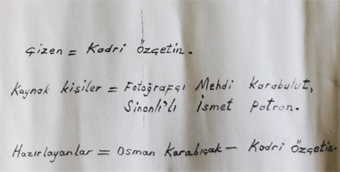 Çizen = Kadri Özçetin.
Kaynak kişiler = Fotoğrafçı Mehdi Karabulut,
Sinanlı'lı İsmet Patron.
Hazırlayanlar = Osman Karabıçak – Kadri Özçetin.